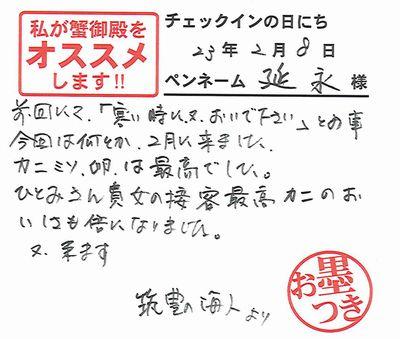 私が蟹御殿を
オススメ
します!!
チェックインの日にち
23年2月8日
ペンネーム 延永 様
前回にて、「寒い時に又、おいで下さい」との事
今回は何とか、2月に来ました。
カニミソ、卵、は最高でした。
ひとみさん貴女の接客最高カニのお
いしさも倍になりました。
又、来ます
筑豊の海人より
お墨つき